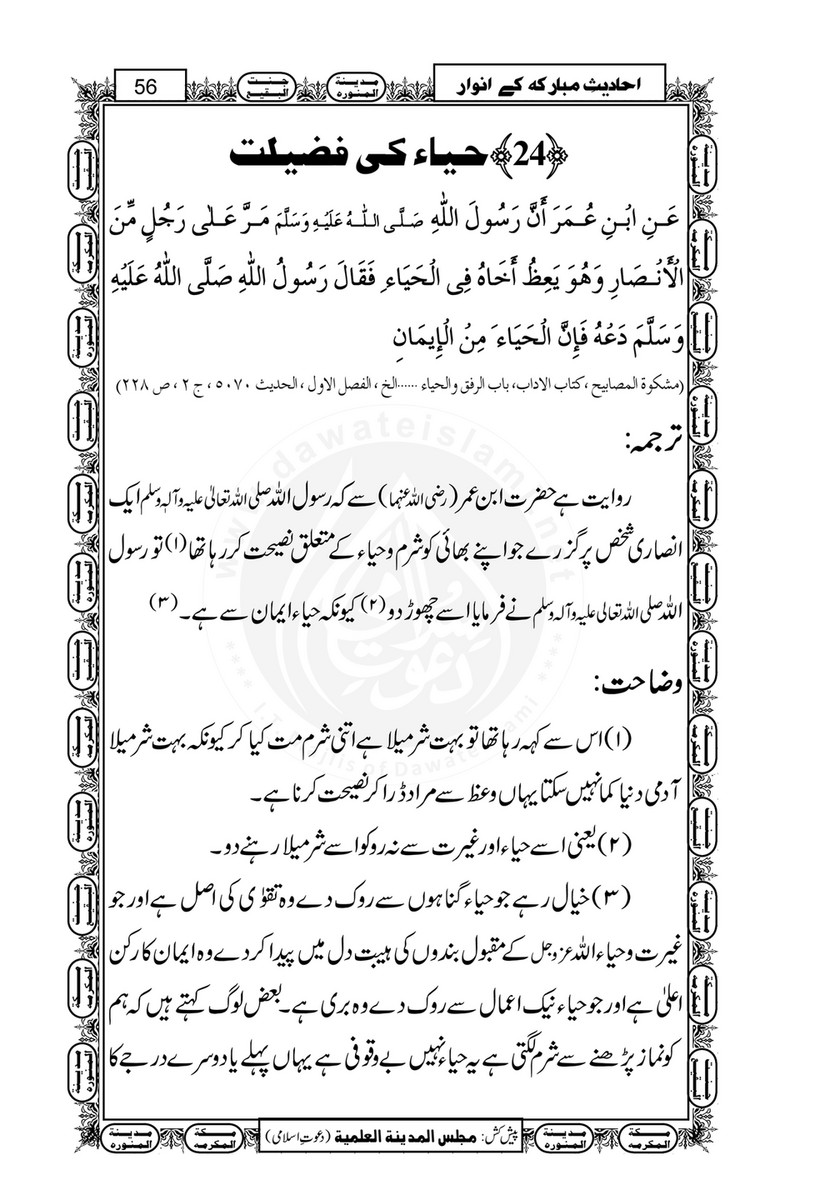 احادیثِ مبارکہ کے انوار
56
﴿24﴾ حیاء کی فضیلت
عَنِ ابْنِ عُمَرَ أَنَّ رَسُولَ اللّٰہِ صَلَّی اللّٰہُ عَلَیْہِ وَسَلَّمَ مَرَّ عَلٰی رَجُلٍ مِّنَ
الْأَنْصَارِ وَهُوَ يَعِظُ أَخَاهُ فِى الْحَيَاءِ فَقَالَ رَسُولُ اللّٰهِ صَلَّى اللّٰهُ عَلَيْهِ
وَسَلَّمَ دَعْهُ فَإِنَّ الْحَيَاءَ مِنْ الْإِيمَانِ
(مشکوۃ المصابیح ، کتاب الاداب، باب الرفق والحیاء ......الخ ، الفصل الاول ، الحدیث ۵۰۷۰ ، ج ۲ ، ص ۲۲۸)
ترجمہ:
روایت ہے حضرت ابن عمر (رضی اللہ عنہما) سے کہ رسول اللہ صلی اللہ تعالیٰ علیہ وآلہٖ وسلم ایک
انصاری شخص پر گزرے جو اپنے بھائی کو شرم وحیاء کے متعلق نصیحت کر رہا تھا (۱) تو رسول
اللہ صلی اللہ تعالی علیہ وآلہ وسلم نے فرمایا اسے چھوڑ دو (۲) کیونکہ حیاء ایمان سے ہے۔ (۳)
وضاحت:
(۱) اس سے کہہ رہا تھا تو بہت شرمیلا ہے اتنی شرم مت کیا کر کیونکہ بہت شرمیلا
آدمی دنیا کما نہیں سکتا یہاں وعظ سے مراد ڈرا کر نصیحت کرنا ہے۔
(۲) یعنی اسے حیاء اور غیرت سے نہ روکو اسے شرمیلا رہنے دو۔
(۳) خیال رہے جو حیاء گناہوں سے روک دے وہ تقوٰی کی اصل ہے اور جو
غیرت وحیاء اللہ عزوجل کے مقبول بندوں کی ہیبت دل میں پیدا کر دے وہ ایمان کا رکن
اعلیٰ ہے اور جو حیاء نیک اعمال سے روک دے وہ بری ہے۔ بعض لوگ کہتے ہیں کہ ہم
کو نماز پڑھنے سے شرم لگتی ہے یہ حیاء نہیں بے وقوفی ہے یہاں پہلے یا دوسرے درجے کا
پیش کش: مجلس المدینۃ العلمیۃ (دعوتِ اسلامی)